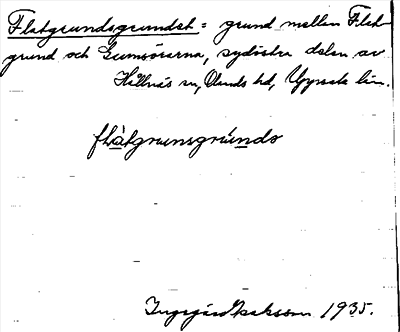 Flatgrundsgrundet = grund mellan Flat-
grund och Gumsörarna, sydöstra delen av
Hållnäs sn, Olands hd, Uppsala län.
flàtgrunsgrúndə
Ingegärd Isaksson 1935.